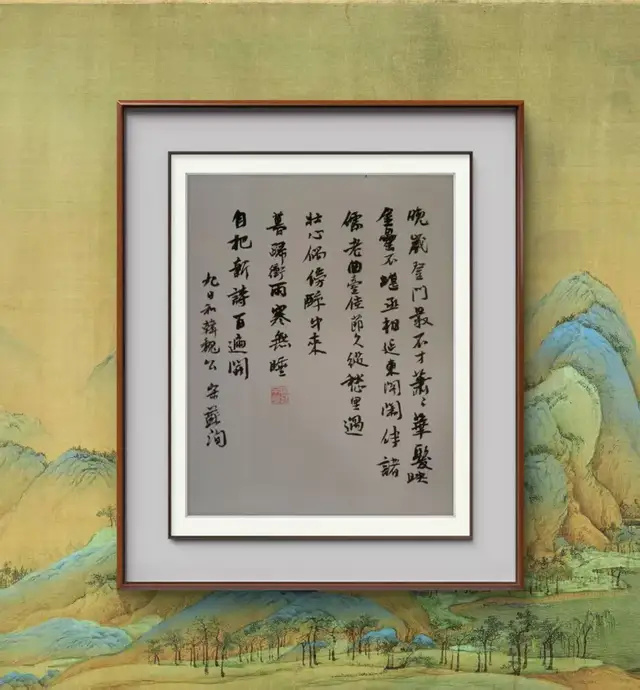 晚歲登門最不才蕭〻華髮映
金罍不堪丞相延東閣閑伴諸
儒老曲臺佳節久從愁里過
壯心偶傍醉中來
暮歸衝雨寒無睡
自把新詩百遍開
九日和韓魏公 宋蘇洵